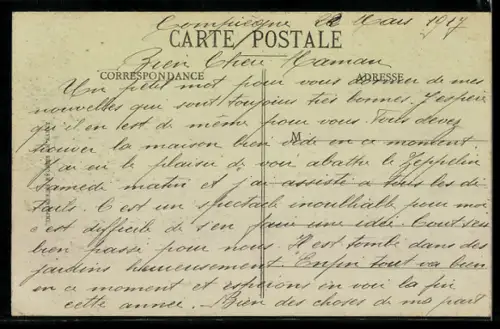 Compiègne 22 Mars 1917
CARTE POSTALE
Bien Chère Maman
CORRESPONDANCE
ADRESSE
Un petit mot pour vous donner de mes
nouvelles qui sont toujours très bonnes. J'espère
qu'il en est de même pour vous. Vous devez
trouver la maison bien vide en ce moment.
M
J'ai eu le plaisir de voir abattre le Zeppelin
Samedi matin et j'ai assisté à tous les dé
tails. C'est un spectacle inoubliable pour moi
c'est difficile de s'en faire une idée. Tout s'est
bien passé pour nous. Il est tombé dans des
jardins heureusement. Enfin tout va bien
en ce moment et espérons en voir la fin
cette année. Bien des choses de ma part